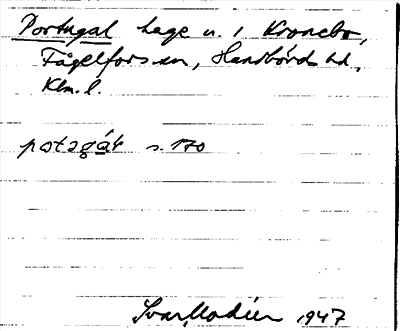 Portugal hage u. 1 Kronebo,
Fågelfors sn, Handbörds hd,
Klm. l.
potəgáɫ s. 170
Ivar Modéer 1947